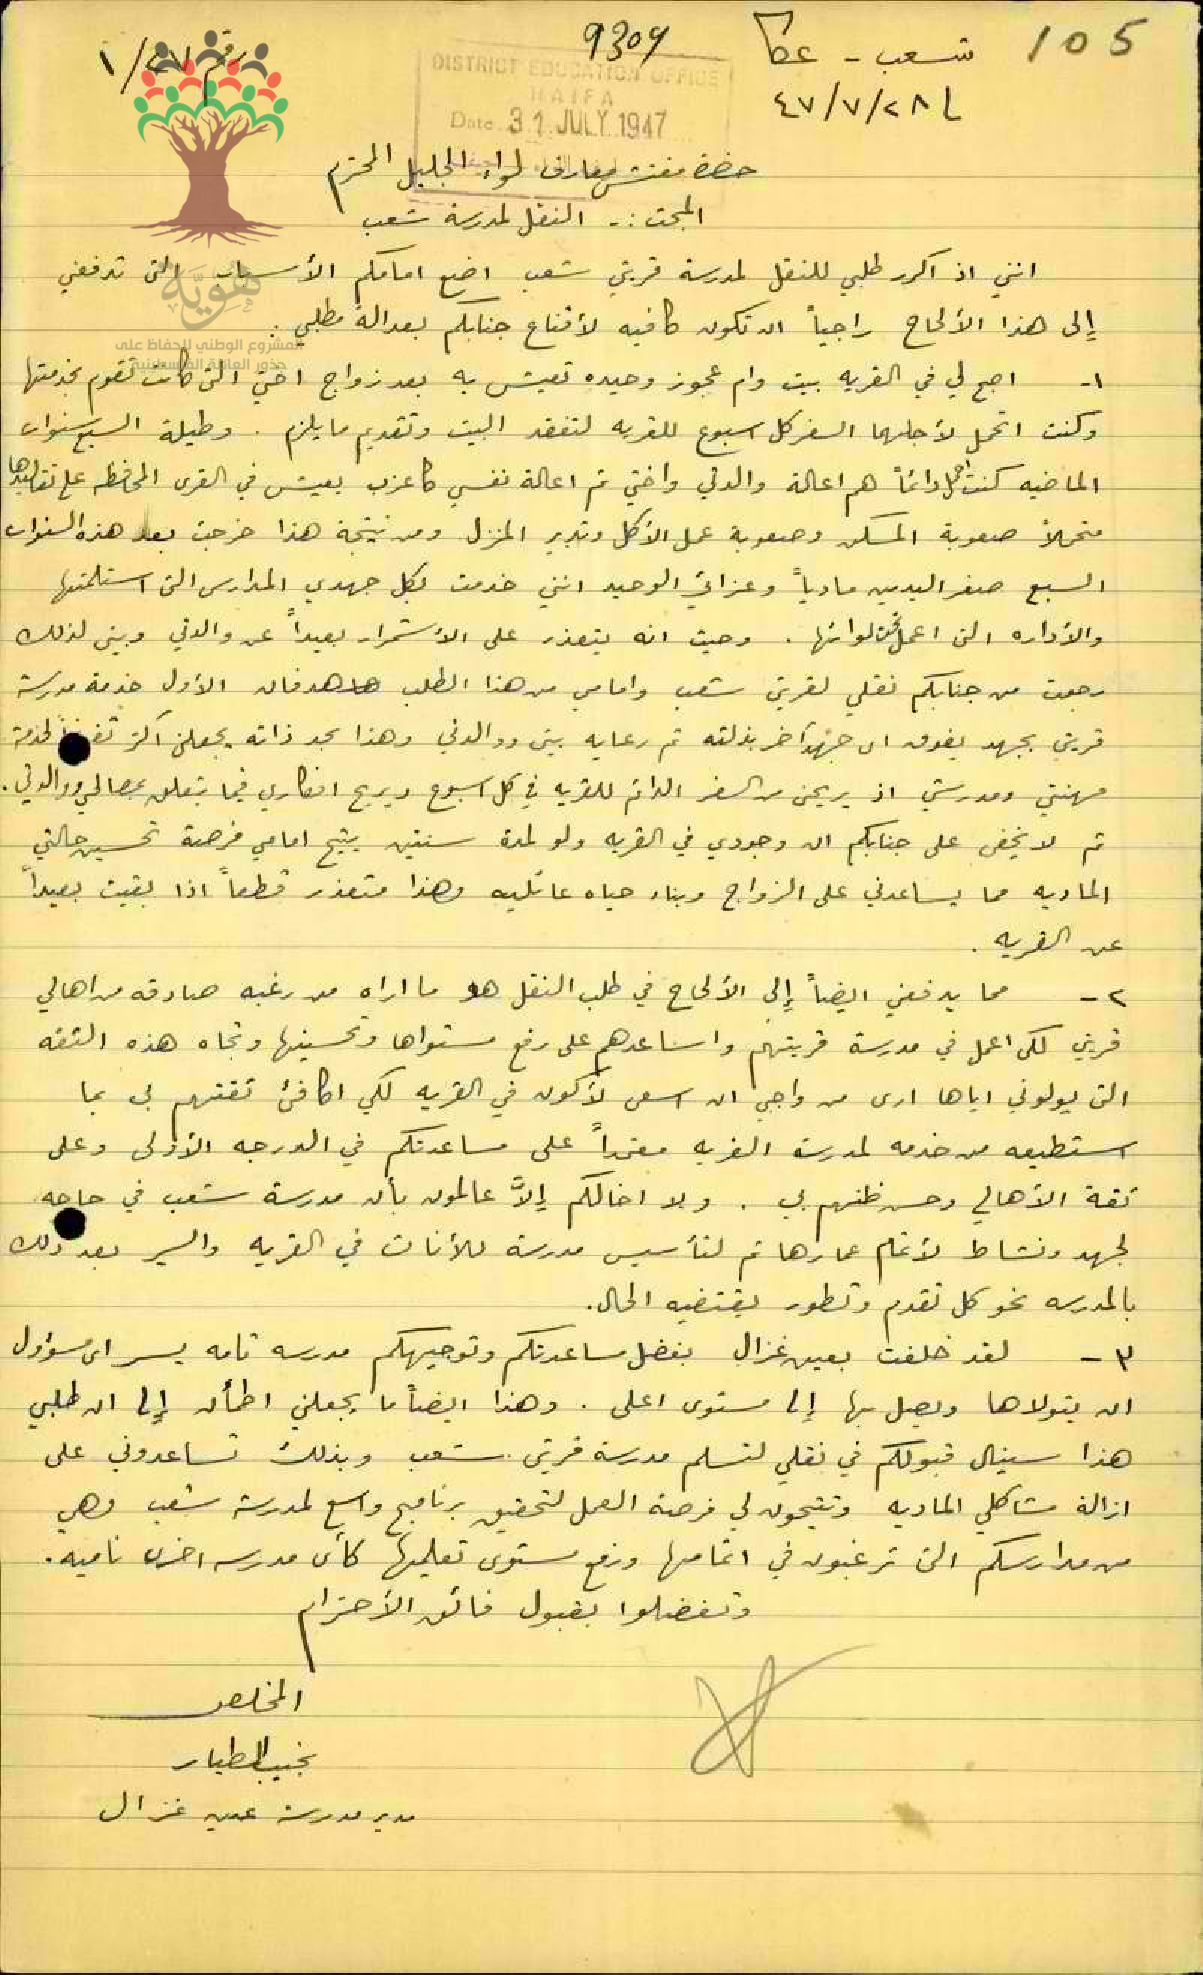 105
شعب - عكا
9309
رقم ١/٢٧
٤٧/٧/٢٨
DISTRICT EDUCATION OFFICE
HAIFA
Date 31 JULY 1947
حضرة مفتش معارف لواء الجليل المحترم
المبحث :- النقل لمدرسة شعب
انني اذ اكرر طلبي للنقل لمدرسة قريتي شعب اضع امامكم الأسباب التي تدفعني
هُويَّة
إلى هذا الألحاح راجياً ان تكون كافيه لأقناع جنابكم بعدالة مطلبي :
المشروع الوطني للحفاظ على
جذور العائلة الفلسطينية
١- اصبح لي في القريه بيت وام عجوز وحيده تعيش به بعد زواج اختي التي كانت تقوم بخدمتها
وكنت اتحمل لأجلهما السفر كل اسبوع للقريه لتفقد البيت وتقديم ما يلزم . وطيلة السبع سنوات
الماضيه كنت احمل دائماً هم اعالة والدتي واختي ثم اعالة نفسي كاعزب يعيش في القرى المحافظه على تقاليدها
متحملاً صعوبة المسكن وصعوبة عمل الأكل وتدبير المنزل ومن نتيجة هذا خرجت بعد هذه السنوات
السبع صفر اليدين مادياً وعزائي الوحيد انني خدمت بكل جهدي المدارس التي استلمتها
والأداره التي اعمل تحت لوائها . وحيث انه يتعذر علي الأستمرار بعيداً عن والدتي وبيتي لذلك
رجوت من جنابكم نقلي لقريتي شعب وامامي من هذا الطلب هدفان الأول خدمة مدرسة
قريتي بجهد يفوق اي جهد آخر بذلته ثم رعايه بيتي ووالدتي وهذا بحد ذاته يجعلني اكثر تفرغاً لخدمة
مهنتي ومدرستي اذ يريحني من السفر الدائم للقريه في كل اسبوع ويريح افكاري فيما يتعلق بمصالحي ووالدتي .
ثم لا يخفى على جنابكم ان وجودي في القريه ولو لمدة سنتين يتيح امامي فرصة تحسين حالتي
الماديه مما يساعدني على الزواج وبناء حياه عائليه وهذا متعذر قطعاً اذا بقيت بعيداً
عن القريه .
٢- مما يدفعني ايضاً إلى الألحاح في طلب النقل هو ما اراه من رغبه صادقه من اهالي
قريتي لكي اعمل في مدرسة قريتهم واساعدهم على رفع مستواها وتحسينها وتجاه هذه الثقه
التي يولوني اياها ارى من واجبي ان اسعى لأكون في القريه لكي اكافئ ثقتهم بي بما
استطيعه من خدمه لمدرسة القريه معتمداً على مساعدتكم في الدرجه الأولى وعلى
ثقة الأهالي وحسن ظنهم بي . ولا اخالكم إلاَّ عالمون بأن مدرسة شعب في حاجه
لجهد ونشاط لأتمام عمارها ثم لتأسيس مدرسة للأناث في القريه والسير بعد ذلك
بالمدرسه نحو كل تقدم وتطور يقتضيه الحال.
٣- لقد خلفت بعين غزال بفضل مساعدتكم وتوجيهكم مدرسه تامه يسر اي مسؤول
ان يتولاها ويصل بها إلى مستوى اعلى . وهذا ايضاً ما يجعلني اطمأن إلى ان طلبي
هذا سينال قبولكم في نقلي لتسلم مدرسة قريتي شعب وبذلك تساعدوني على
ازالة مشاكلي الماديه وتتيحون لي فرصة العمل لتحقيق برنامج واسع لمدرسة شعب وهي
من مدارسكم التي ترغبون في اتمامها ورفع مستوى تعليمها كأي مدرسه اخرى ناميه .
وتفضلوا بقبول فائق الأحترام
المخلص
نجيب الطيار
مدير مدرسة عين غزال